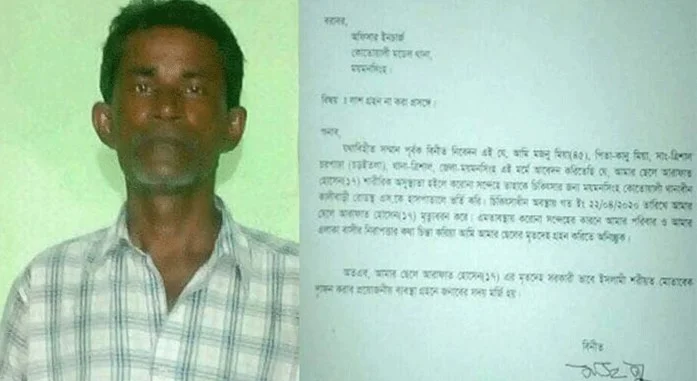 বরাবর,
অফিসার ইনচার্জ
কোতোয়ালী মডেল থানা,
ময়মনসিংহ।
বিষয় : লাশ গ্রহন না করা প্রসঙ্গে।
জনাব,
যথাবিহীত সম্মান পূর্বক বিনীত নিবেদন এই যে, আমি মজনু মিয়া(৪৫), পিতা-কালু মিয়া, সাং-ত্রিশাল
চরপাড়া থানা-ত্রিশাল, জেলা-ময়মনসিংহ এই মর্মে আবেদন করিতেছি যে, আমার ছেলে আরাফাত
হোসেন(১৭) শারীরিক অসুস্থ্যতা হইলে করোনা সন্দেহে তাহাকে চিকিৎসার জন্য ময়মনসিংহ কোতোয়ালী থানাধীন
কালীবাড়ী রোডস্থ এস,কে হাসপাতালে ভর্তি করি। চিকিৎসাধীন অবস্থায় গত ইং ২২/০৪/২০২০ তারিখে আমার
ছেলে আরাফাত হোসেন(১৭) মৃত্যুবরন করে। এমতাবস্থায় করোনা সন্দেহের কারনে আমার পরিবার ও আমার
এলাকা বাসীর নিরাপত্তার কথা চিন্তা করিয়া আমি আমার ছেলের মৃতদেহ গ্রহন করিতে অনিচ্ছুক।
অতএব, আমার ছেলে আরাফাত হোসেন(১৭) এর মৃতদেহ সরকারী ভাবে ইসলামী শরীয়ত মোতাবেক
দাফন করার প্রয়োজনীয় ব্যবস্থা গ্রহনে জনাবের সদয় মর্জি হয়।
বিনীত